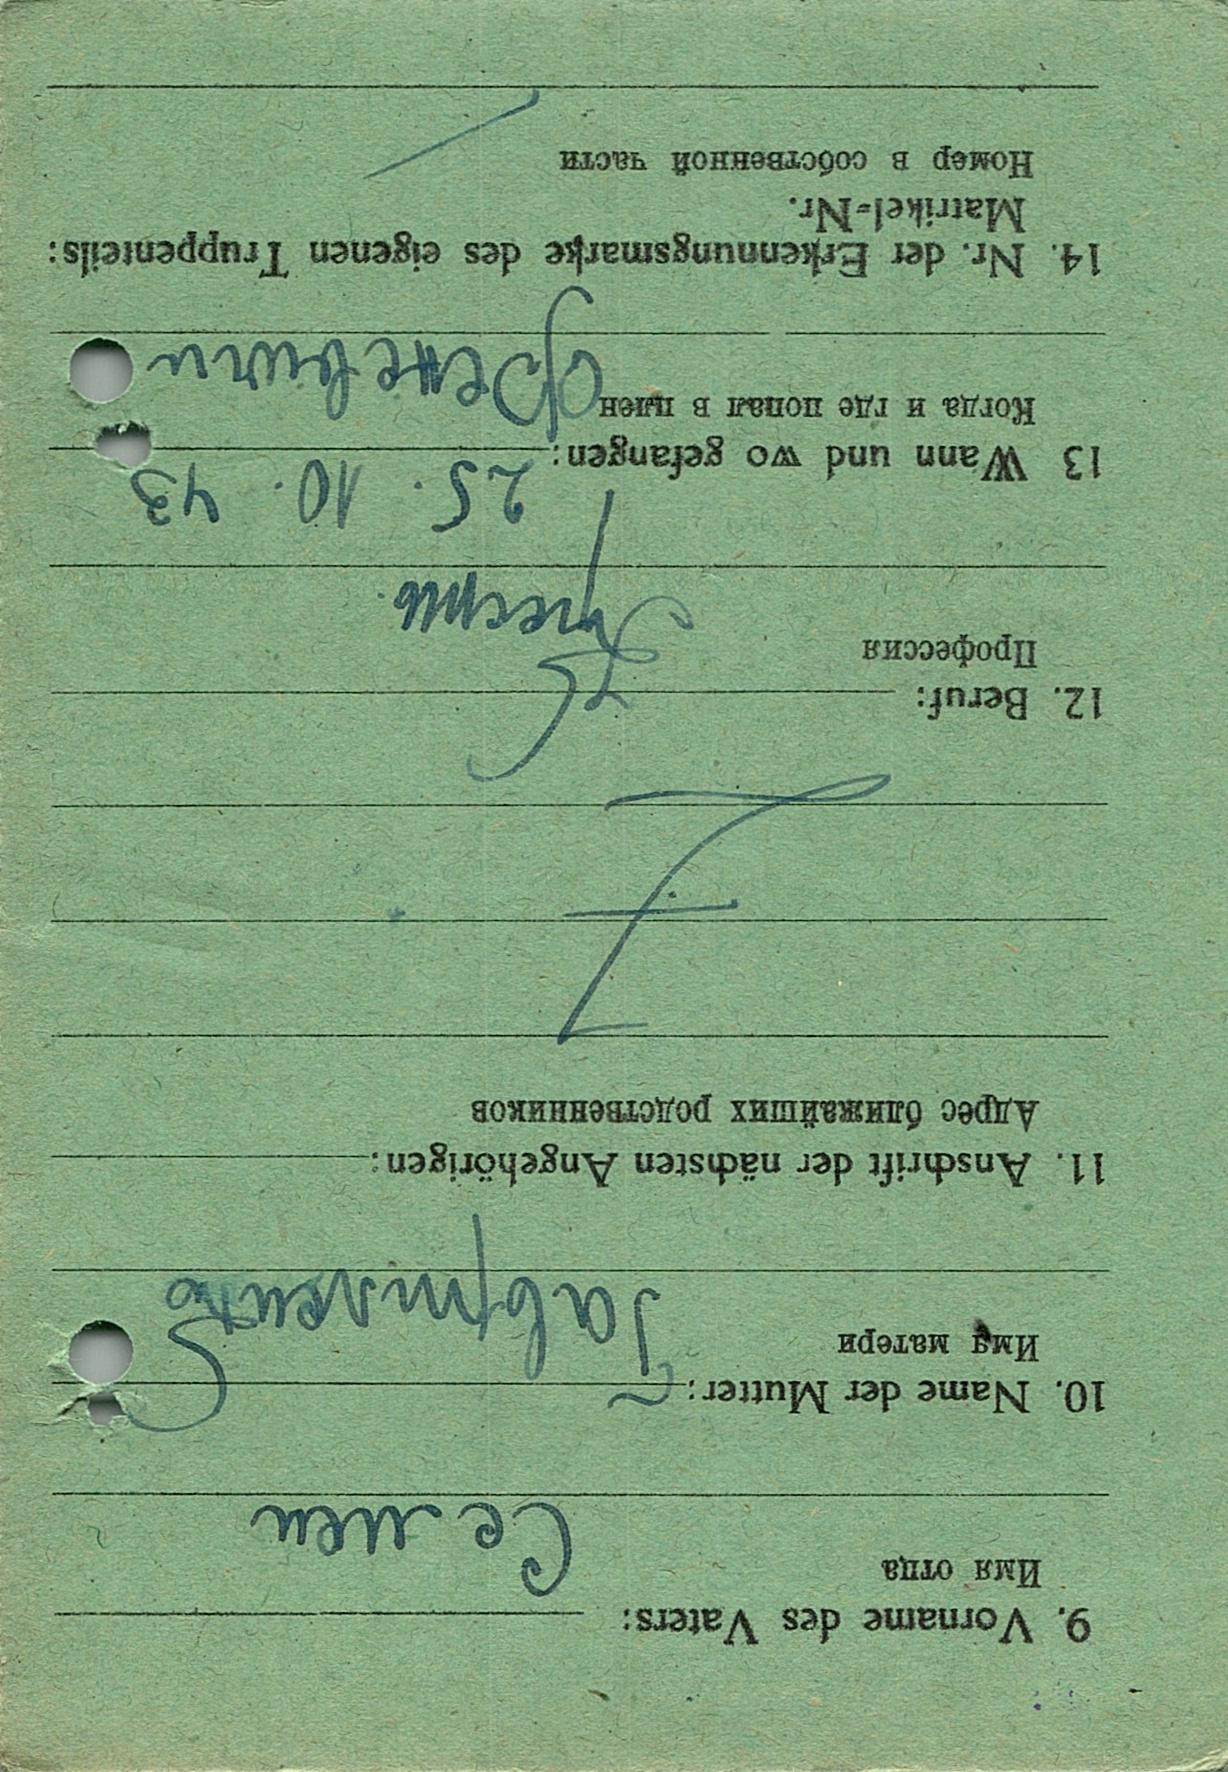 9. Vorname des Vaters:
Имя отца
Семен
10. Name der Mutter:
Имя матери
Гавриленко
11. Anschrift der nächsten Angehörigen:
Адрес ближайших родственников
12. Beruf:
Профессия
Крестьян.
13 Wann und wo gefangen:
25. 10. 43
Когда и где попал в плен
14. Nr. der Erkennungsmarke des eigenen Truppenteils:
Matrikel-Nr.
Номер в собственной части